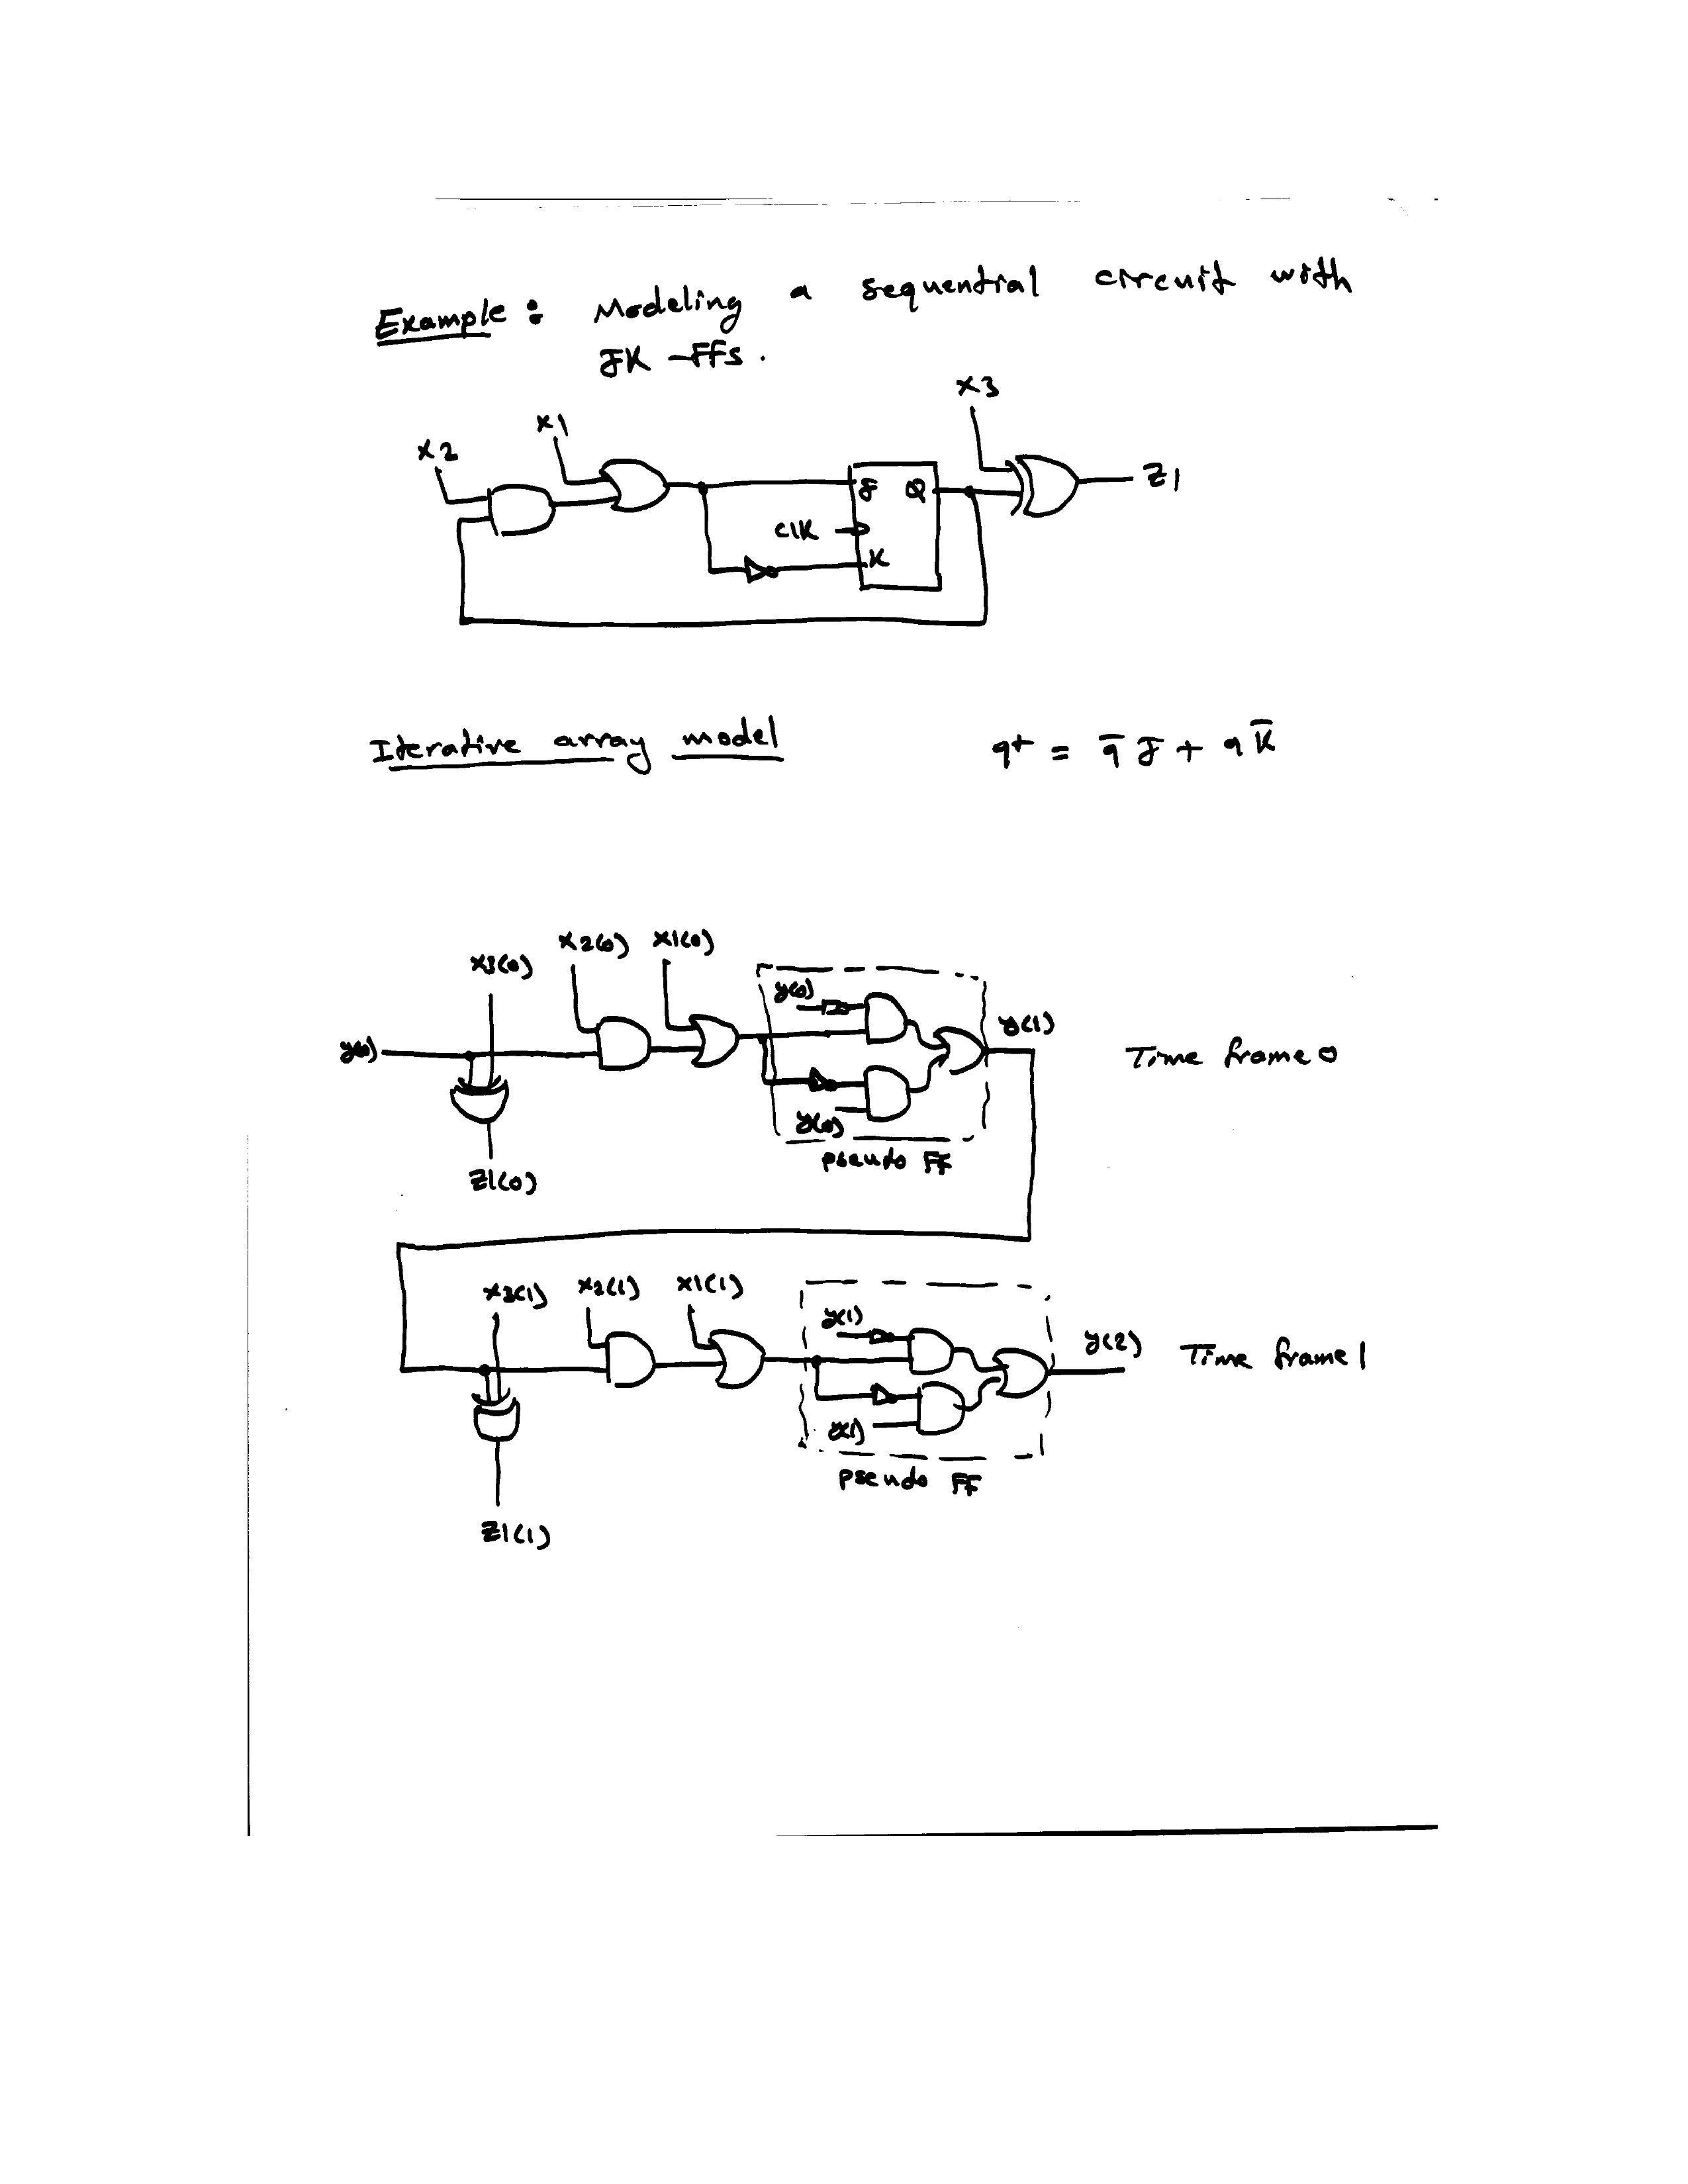 Example: Modeling a sequential circuit with
JK-FFs.
x3
x1
x2
J Q
Z1
CLK
K
Iterative array model q+ = q̅ J + q K̅
x2(0) x1(0)
x3(0)
y(0)
y(1)
y(0) Time frame 0
y(0)
pseudo FF
Z1(0)
x3(1) x2(1) x1(1)
y(1)
y(2) Time frame 1
y(1)
pseudo FF
Z1(1)